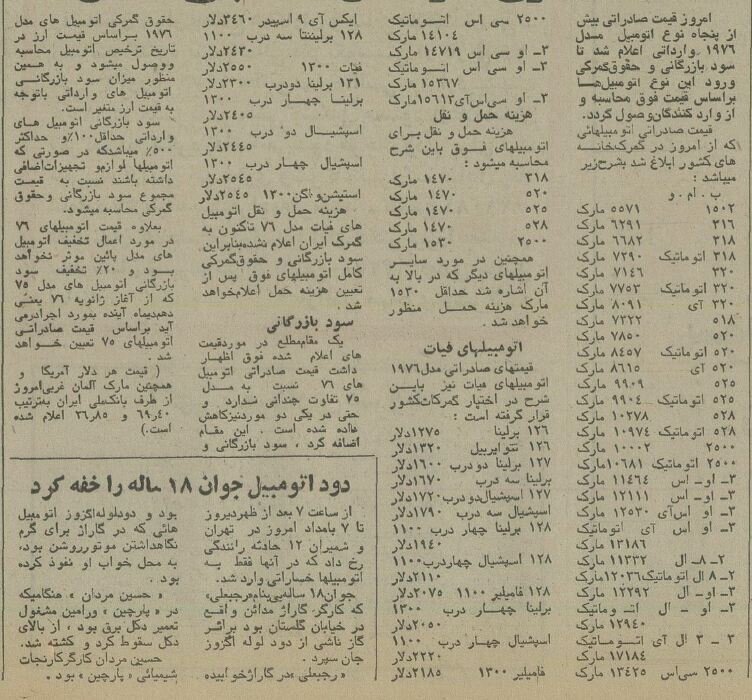 امروز قیمت صادراتی بیش
از پنجاه نوع اتومبیل مدل
۱۹۷۶ وارداتی اعلام شد تا
سود بازرگانی و حقوق گمرکی
ورود این نوع اتومبیل‌ها
براساس قیمت فوق محاسبه و
از وارد کنندگان وصول گردد.
قیمت صادراتی اتومبیلهائی
که از امروز در گمرکخانه
های کشور ابلاغ شد بشرح زیر
میباشد :
ب . ام . و
۱۵۰۲ ۵۵۷۱ مارک
۳۱۶ ۶۲۹۱ مارک
۳۱۸ ۶۶۸۲ مارک
۳۱۸ اتوماتیک ۷۲۹۰ مارک
۳۲۰ ۷۱۴۶ مارک
۳۲۰ اتوماتیک ۷۷۵۳ مارک
۳۲۰ آی ۸۰۹۱ مارک
۵۱۸ ۷۳۲۲ مارک
۵۲۰ ۷۸۵۰ مارک
۵۲۰ اتوماتیک ۸۴۵۷ مارک
۵۲۰ آی ۸۶۱۵ مارک
۵۲۵ ۹۹۰۹ مارک
۵۲۵ اتوماتیک ۹۹۰۴ مارک
۵۲۸ ۱۰۲۷۸ مارک
۵۲۸ اتوماتیک ۱۰۹۷۴ مارک
۲۵۰۰ ۱۰۰۰۲ مارک
۲۵۰۰ اتوماتیک ۱۰۶۸۱ مارک
۳ـ او ـ اس ۱۱۴۶۴ مارک
۳ـ او ـ اس ۱۲۱۱۱ مارک
۳ـ او اس‌آی ۱۲۵۳۰ مارک
۳ـ او اس آی اتوماتیک
۱۳۱۸۶ مارک
۲ـ۸ـ ال ۱۱۳۳۲ مارک
۲ـ۸ ال اتوماتیک ۱۲۰۳۶ مارک
۳ـ او ـ ال ۱۲۲۹۲ مارک
۳ـ او ـ ال اتوماتیک
۱۲۹۴۰ مارک
۳ـ۳ ال آی اتوماتیک
۱۷۱۸۴ مارک
۲۵۰۰ سی‌اس ۱۳۴۲۵ مارک
۲۵۰۰ سی اس اتوماتیک
۱۴۱۰۴ مارک
۳ـ او سی اس ۱۴۷۱۹ مارک
۳ـ او سی اس اتوماتیک
۱۵۳۶۷ مارک
۳ـ او سی‌اس‌آی ۱۵۶۱۲ مارک
هزینه حمل و نقل
هزینه حمل و نقل برای
اتومبیلهای فوق باین شرح
محاسبه میشود :
۳۱۸ ۱۴۷۰ مارک
۵۲۰ ۱۴۷۰ مارک
۵۲۵ ۱۴۷۰ مارک
۵۲۸ ۱۴۷۰ مارک
۲۵۰۰ ۱۵۳۰ مارک
همچنین در مورد سایر
اتومبیلهای دیگر که در بالا به
آن اشاره شد حداقل ۱۵۳۰
مارک هزینه حمل منظور
خواهد شد .
اتومبیلهای فیات
قیمتهای صادراتی مدل ۱۹۷۶
اتومبیلهای فیات نیز باین
شرح در اختیار گمرکات کشور
قرار گرفته است :
۱۲۶ برلینا ۱۲۷۵ دلار
۱۲۶ تتواپریبل ۱۳۲۰ دلار
۱۲۷ برلینا دو درب ۱۶۰۰ دلار
برلینا سه درب ۱۶۷۰ دلار
۱۲۷ اسپشیال دو درب ۱۷۲۰ دلار
اسپشیال سه درب ۱۷۹۰ دلار
۱۲۸ برلینا چهار درب ۱۱۰۰
۱۹۴۰ دلار
۱۲۸ اسپشیال چهار درب ۱۱۰۰
۲۱۱۰ دلار
۱۲۸ فامیلیر ۱۱۰۰ ۲۰۷۵ دلار
برلینا چهار درب ۱۳۰۰
۲۰۵۰ دلار
اسپشیال چهار درب ۱۱۰۰
۲۲۲۰ دلار
فامیلیر ۱۳۰۰ ۲۱۸۵ دلار
ایکس آی ۹ اسپیدر ۳۴۶۰ دلار
۱۲۸ برلینتا سه درب ۱۱۰۰
۲۴۳۰ دلار
فیات ۱۳۰۰ ۲۵۵۰ دلار
۱۳۱ برلینا دو درب ۲۳۰۰ دلار
برلینا چهار درب ۱۳۰۰
۲۴۰۵ دلار
اسپشیال دو درب ۱۳۰۰
۲۴۴۵ دلار
اسپشیال چهار درب ۱۳۰۰
۲۵۴۵ دلار
استیشن واگن ۱۳۰۰ ۲۵۴۵ دلار
هزینه حمل و نقل اتومبیل
های فیات مدل ۷۶ تاکنون به
گمرک ایران اعلام نشده بنابراین
سود بازرگانی و حقوق گمرکی
کامل اتومبیلهای فوق پس از
تعیین هزینه حمل اعلام خواهد
شد .
سود بازرگانی
یک مقام مطلع در مورد قیمت
های اعلام شده فوق اظهار
داشت قیمت صادراتی اتومبیل
های ۷۶ نسبت به مدل
۷۵ تفاوت چندانی ندارد و
حتی در یکی دو مورد نیز کاهش
داده شده است . این مقام
اضافه کرد ، سود بازرگانی و
حقوق گمرکی اتومبیل های مدل
۱۹۷۶ براساس قیمت ارز در
تاریخ ترخیص اتومبیل محاسبه
و وصول میشود و به همین
منظور میزان سود بازرگانی
اتومبیل های وارداتی باتوجه
به قیمت ارز متغیر است.
سود بازرگانی اتومبیل های
وارداتی حداقل ۱۰۰٪ و حداکثر
۵۰۰٪ میباشد که در صورتی که
اتومبیلها لوازم و تجهیزات اضافی
داشته باشند نسبت به قیمت
مجموع سود بازرگانی و حقوق
گمرکی محاسبه میشود.
بعلاوه قیمت اتومبیلهای ۷۶
در مورد اعمال تخفیف اتومبیل
های مدل پائین موثر نخواهد
بود و ۲۰٪ تخفیف سود
بازرگانی اتومبیل های مدل ۷۵
که از آغاز ژانویه ۷۶ یعنی
دهم دیماه آینده بمورد اجرا درمی
آید براساس قیمت صادراتی
اتومبیلهای ۷۵ تعیین خواهد
شد .
( قیمت هر دلار آمریکا و
همچنین مارک آلمان غربی امروز
از طرف بانک ملی ایران به ترتیب
۶۹٫۴۰ و ۲۶٫۸۵ اعلام شده
است.)
دود اتومبیل جوان ۱۸ ساله را خفه کرد
از ساعت ۷ بعد از ظهر دیروز
تا ۷ بامداد امروز در تهران
و شمیران ۱۲ حادثه رانندگی
رخ داد که در آنها فقط به
اتومبیلها خساراتی وارد شد.
جوان ۱۸ ساله‌یی بنام «رجبعلی»
که کارگر گاراژ مدائن واقع
در خیابان گلستان بود براثر
گاز ناشی از دود لوله اگزوز
جان سپرد .
« رجبعلی » در گاراژ خوابیده
بود و دود لوله اگزوز اتومبیل
هائی که در گاراژ برای گرم
نگاهداشتن موتور روشن بود،
به محل خواب او نفوذ کرده
بود .
« حسین مردان » هنگامیکه
در « پارچین » ورامین مشغول
تعمیر دکل برق بود ، از بالای
دکل سقوط کرد و کشته شد.
حسین مردان کارگر کارخانجات
شیمیائی « پارچین » بود .